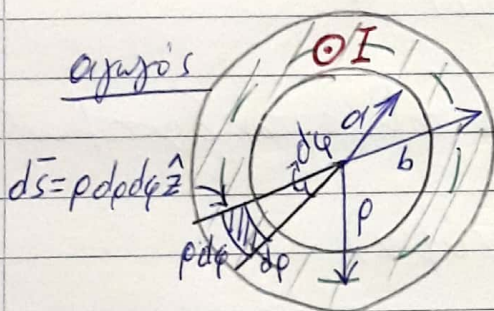 ⊙I
αγωγός
a
dφ
b
ds̄=ρdρdφẑ
ρ
ρdφ dρ